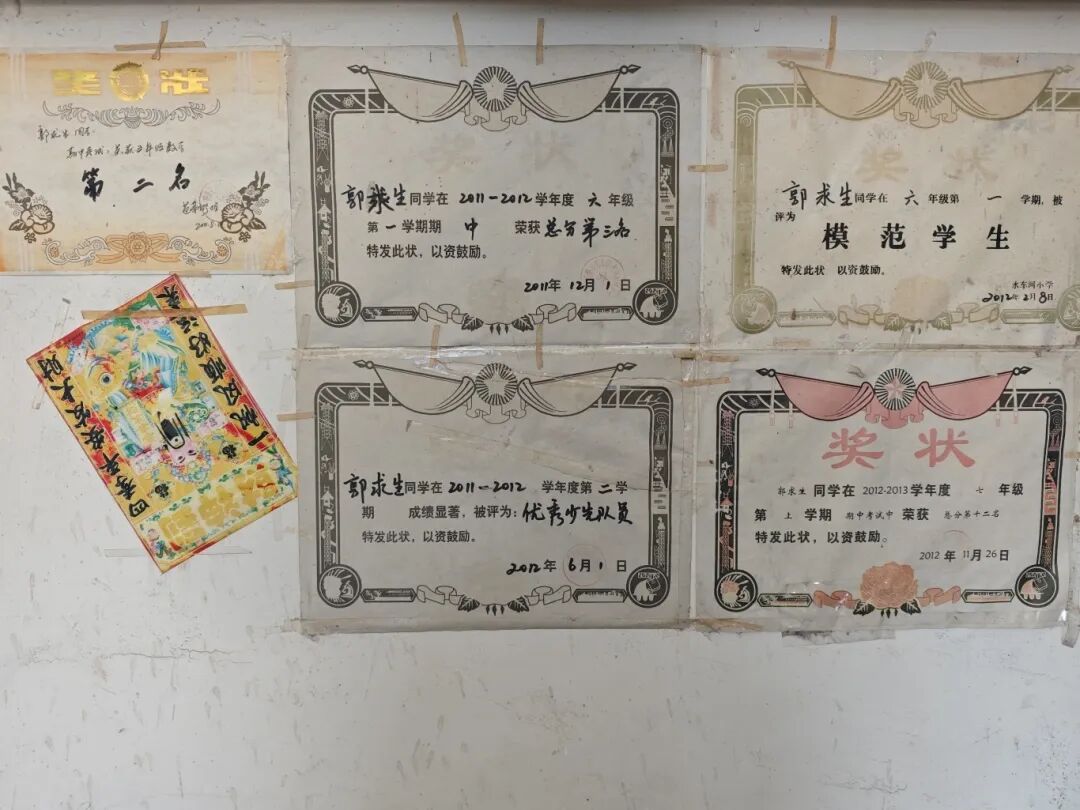 奖 状
郭求生 同学:
第 二 名
奖 状
郭求生同学在 2011-2012 学年度 六 年级
第 一 学期期 中 荣获 总分第三名
特发此状，以资鼓励。
2011年 12月 1 日
奖 状
郭求生同学在 六 年级第 一 学期，被
评为
模 范 学 生
特发此状 以资鼓励。
水东河小学
2012年 2月 8日
四季平安发大财
一帆风顺好运来
郭求生同学在 2011-2012 学年度第 二 学
期 成绩显著，被评为：优秀少先队员
特发此状，以资鼓励。
2012年 6月 1 日
奖 状
郭求生 同学在 2012-2013 学年度 七 年级
第 上 学期 期中考试中 荣获 总分第十二名
特发此状，以资鼓励。
2012 年 11月 26日